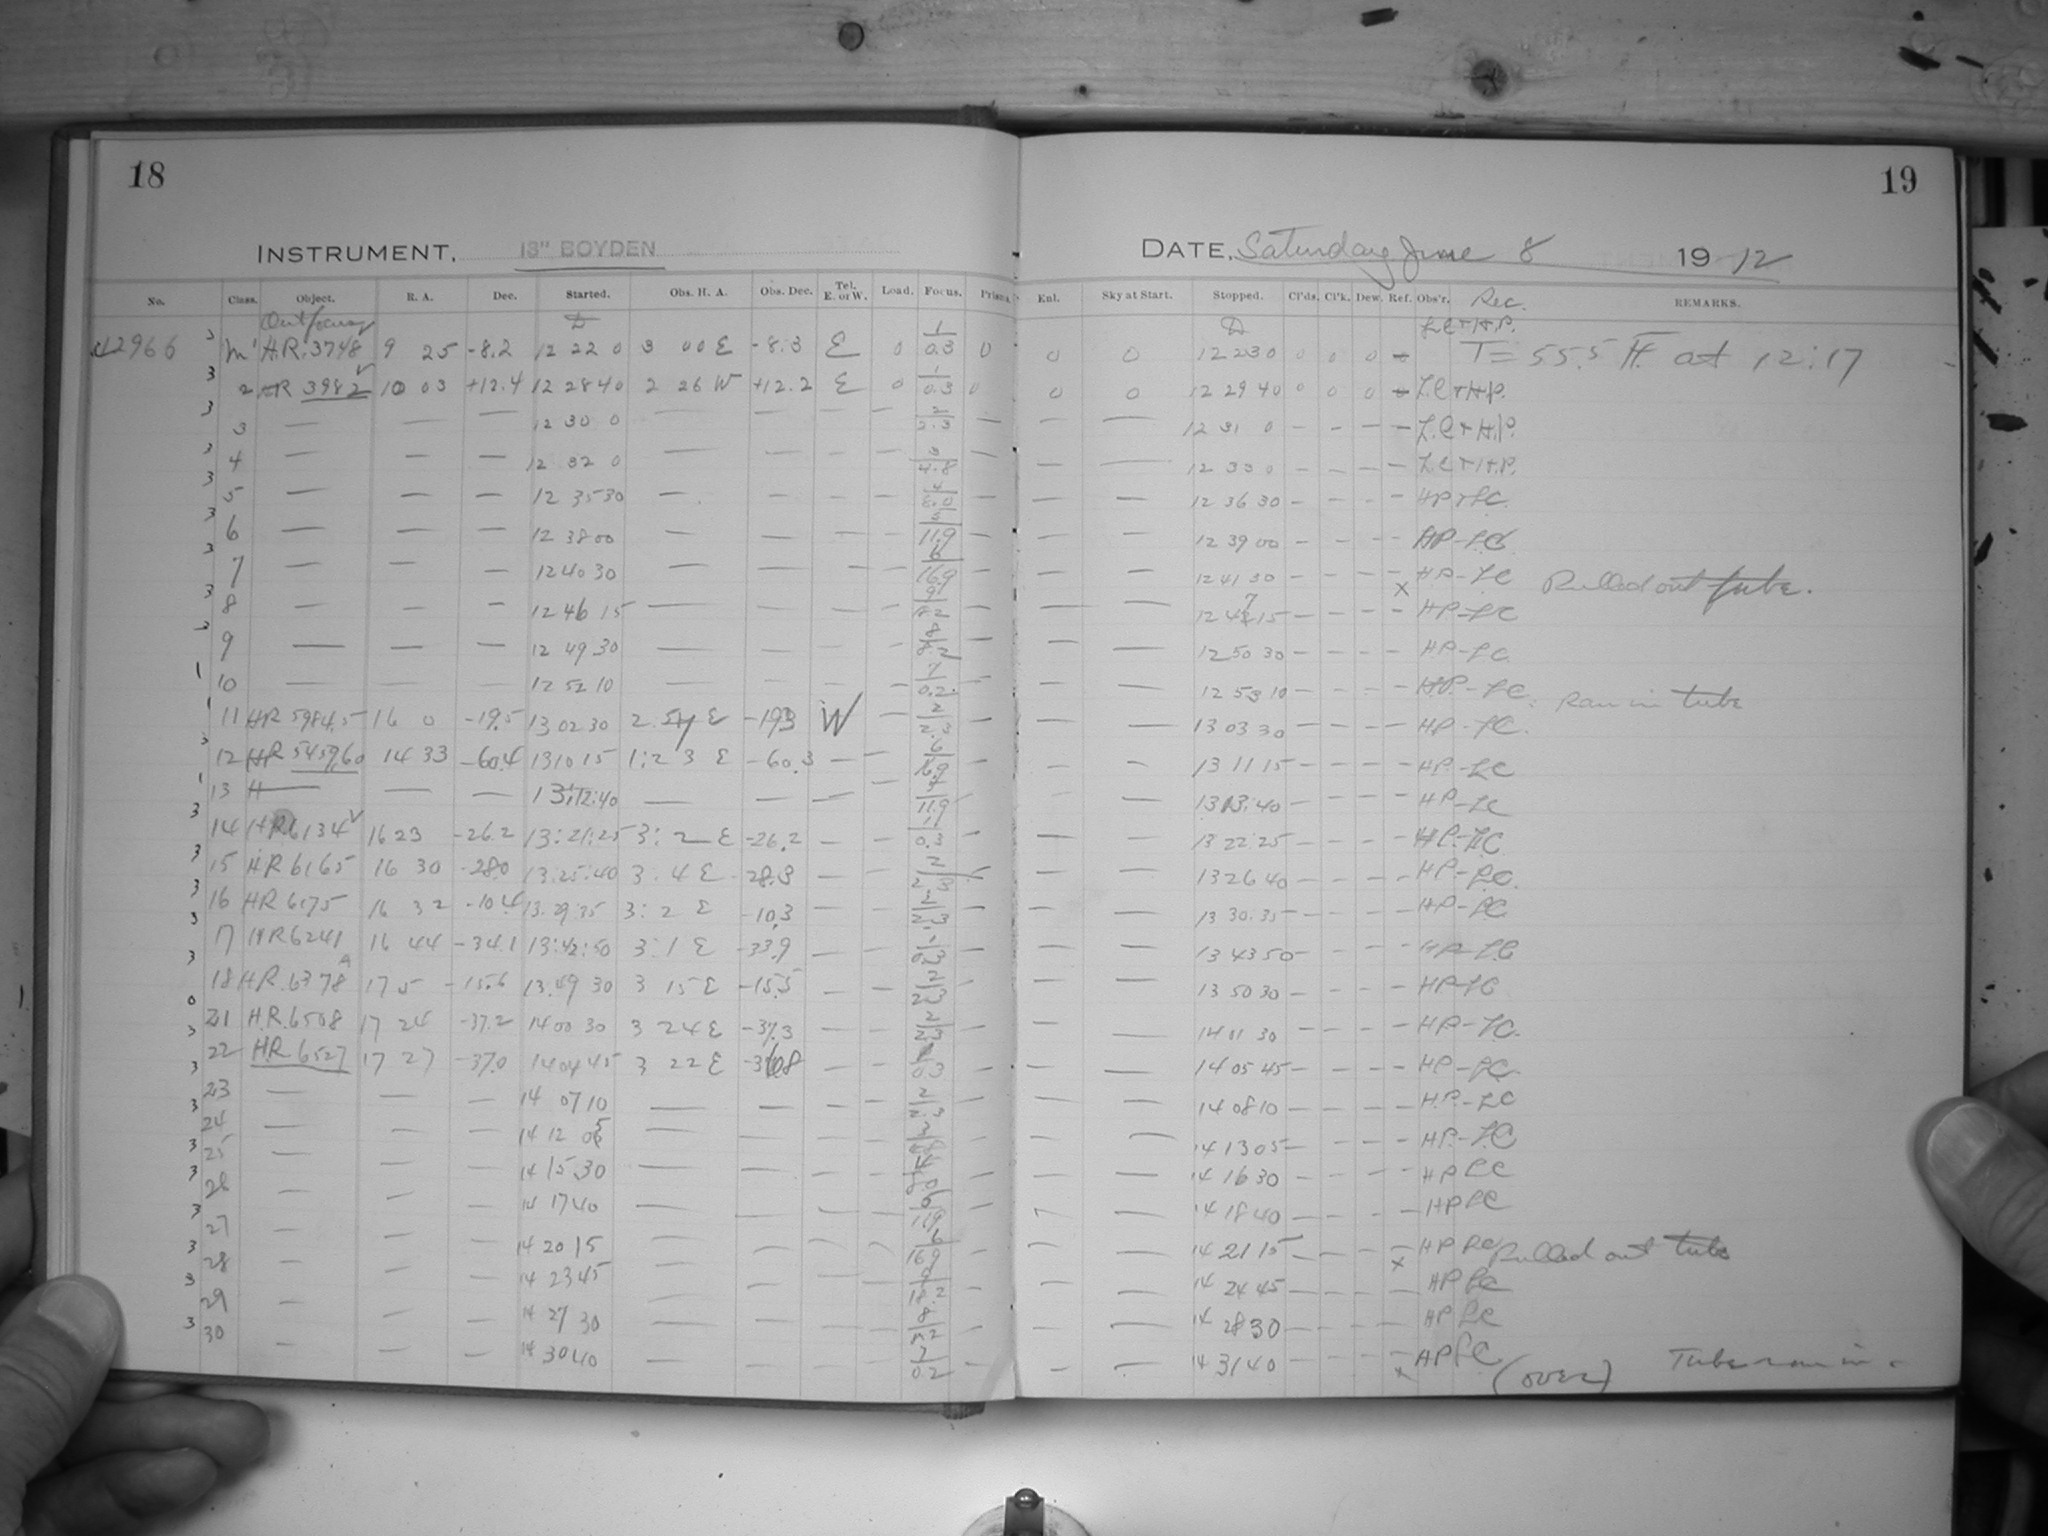 18
INSTRUMENT. 13" BOYDEN
No. Class. Object. R. A. Dec. Started. Obs. H. A. Obs. Dec. Tel. E. or W. Load. Focus. Prism.
Out focus
12966 3 m' H.R. 3748 9 25 -8.2 12 22 0 3 00 E -8.3 E 0 1/0.3 0
3 2 HR 3982 10 03 +12.4 12 28 40 2 26 W +12.2 E 0 1/0.3 0
3 3 — — — 12 30 0 — — — — 2/2.3 —
3 4 — — — 12 32 0 — — — — 3/4.8 —
3 5 — — — 12 35 30 — — — —
3 6 — — — 12 38 00 — — — — 11.9 —
3 7 — — — 12 40 30 — — — — 6/16.9 —
3 8 — — — 12 46 15 — — — —
3 9 — — — 12 49 30 — — — — 8/8.2 —
1 10 — — — 12 52 10 — — — — 7/0.2 —
1 11 HR 5984,5 16 0 -19.5 13 02 30 2. 54 E -19.3 W — 2/2.3 —
3 12 HR 5459,60 14 33 -60.4 13 10 15 1:23 E -60.3 — — 6/16.9
1 13 — — — 13:12:40 — — — — 11.9
3 14 HR 6134 16 23 -26.2 13:21:25 3:2 E -26.2 — — 0.3 —
3 15 HR 6165 16 30 -28.0 13:25:40 3.4 E -28.3 — — 2/2.3 —
3 16 HR 6175 16 32 -10.4 13.29:35 3:2 E -10.3 — — 2/2.3 —
3 17 HR 6241 16 44 -34.1 13:42:50 3:1 E -33.9 — —
3 18 HR 6378 A 17 5 -15.6 13.49 30 3 15 E -15.5 — — 2/2.3 —
0 21 H.R. 6508 17 24 -37.2 14 00 30 3 24 E -37.3 — — 2/2.3 —
3 22 HR 6527 17 27 -37.0 14 04 45 3 22 E -36.8 — — 0.3 —
3 23 — — — 14 07 10 — — — — 2/2.3 —
3 24 — — — 14 12 05 — — — —
3 25 — — — 14 15.30 — — — —
3 26 — — — 14 17 40 — — — — 11.9
3 27 — — — 14 20 15 — — — — 6/16.9 —
3 28 — — — 14 23 45 — — — —
3 29 — — — 14 27 30 — — — —
3 30 — — — 14 30 40 — — — — 7/0.2 —
19
DATE. Saturday June 8 1912
Enl. Sky at Start. Stopped. Cl'ds. Cl'k. Dew. Ref. Obs'r. Rec. REMARKS.
0 0 12 23 0 0 0 0 L.C + H.P. T = 55.5 F. at 12:17
0 0 12 29 40 0 0 0 L.C + H.P.
— — 12 31 0 — — — — L.C + H.P.
— — 12 33 0 — — — — L.C + H.P.
— — 12 36 30 — — — — HP + LC.
— — 12 39 00 — — — — HP - LC.
— — 12 41 30 — — — — x HP - LC Pulled out tube.
— — 12 47 15 — — — — HP - LC
— — 12 50 30 — — — — HP - LC.
— — 12 53 10 — — — — HP - LC. Ran in tube
— — 13 03 30 — — — — HP - LC.
— — 13 11 15 — — — — HP - LC
— — 13 13:40 — — — — HP - LC
— — 13 22:25 — — — — HP - LC
— — 13 26 40 — — — — HP - LC.
— — 13 30.35 — — — — HP - LC
— — 13 43 50 — — — — HP - LC
— — 13 50 30 — — — — HP - LC
— — 14 01 30 — — — — HP - LC.
— — 14 05 45 — — — — HP - LC.
— — 14 08 10 — — — — H.P. - LC
— — 14 13 05 — — — — HP. - LC
— — 14 16 30 — — — — HP LC
— — 14 18 40 — — — — HP LC
— — 14 21 15 — — — — x HP LC Pulled out tube
— — 14 24 45 — — — — HP LC
— — 14 28 30 — — — — HP LC
— — 14 31 40 — — — — x HP LC (over) Tube ran in